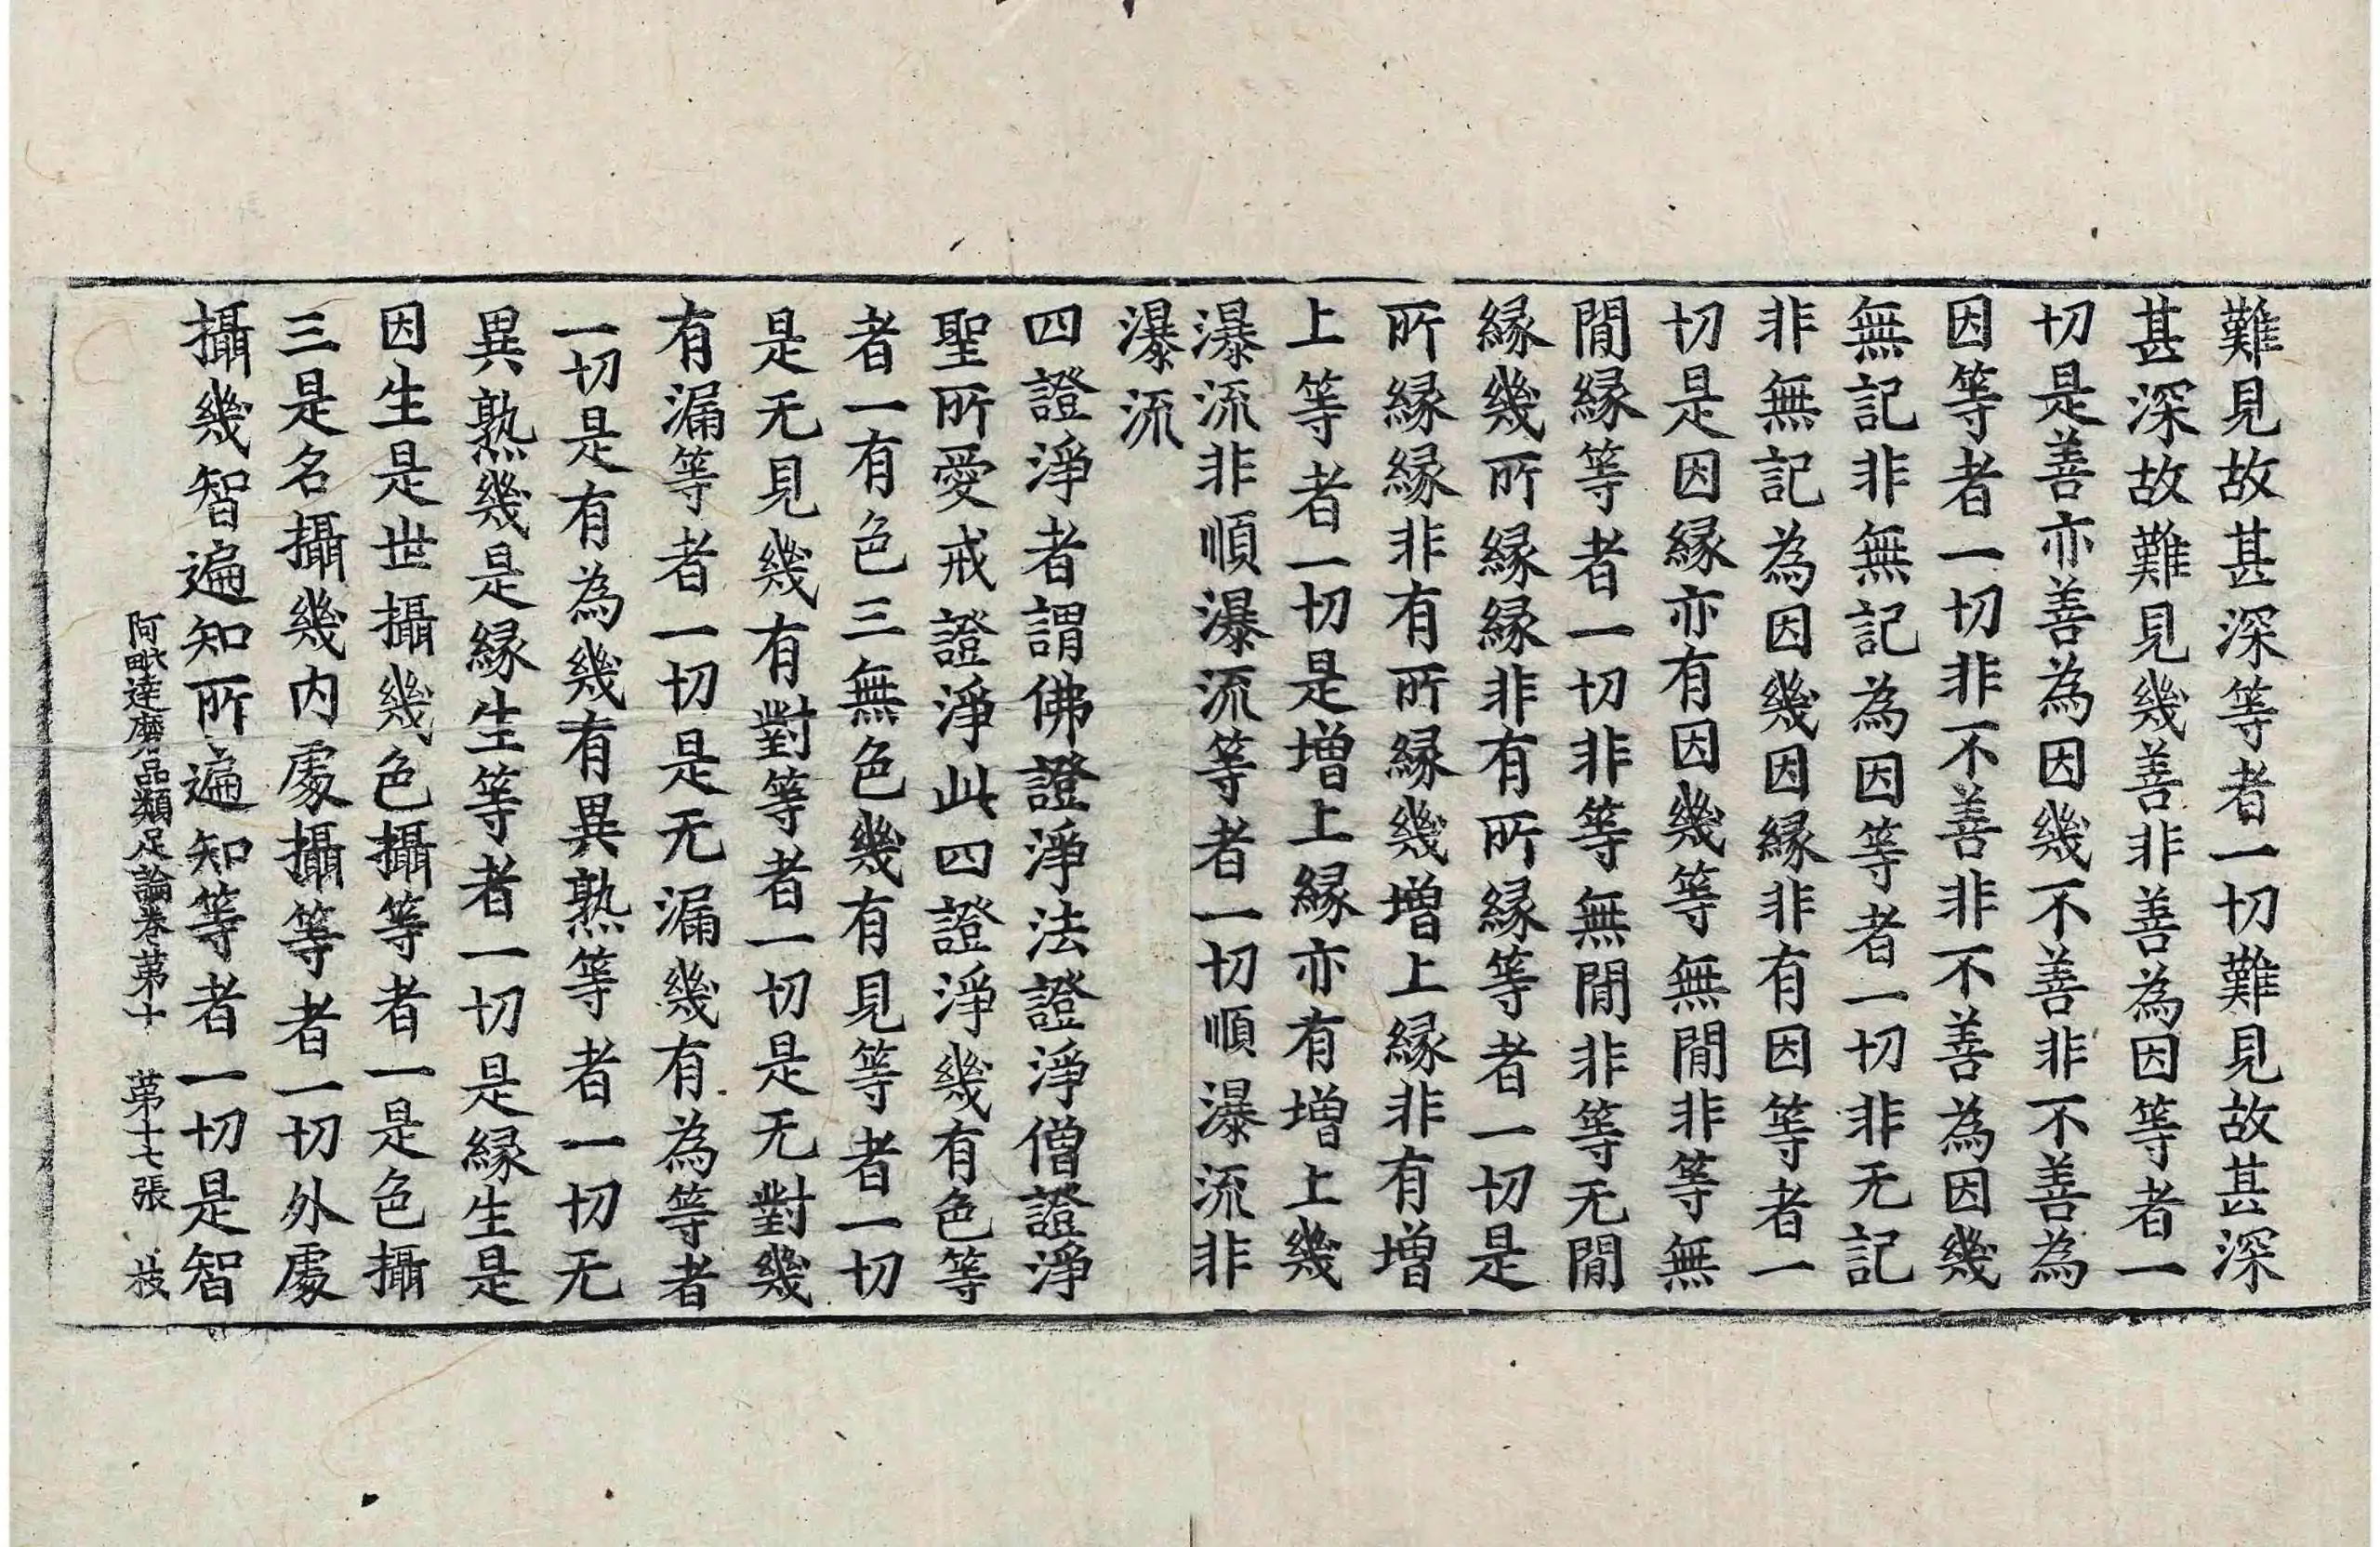 難見故甚深等者一切難見故甚深
甚深故難見幾善非善為因等者一
切是善亦善為因幾不善非不善為
因等者一切非不善非不善為因幾
無記非無記為因等者一切非无記
非無記為因幾因緣非有因等者一
切是因緣亦有因幾等無間非等無
間緣等者一切非等無間非等无間
緣幾所緣緣非有所緣等者一切是
所緣緣非有所緣幾增上緣非有增
上等者一切是增上緣亦有增上幾
瀑流非順瀑流等者一切順瀑流非
瀑流
四證淨者謂佛證淨法證淨僧證淨
聖所愛戒證淨此四證淨幾有色等
者一有色三無色幾有見等者一切
是无見幾有對等者一切是无對幾
有漏等者一切是无漏幾有為等者
一切是有為幾有異熟等者一切无
異熟幾是緣生等者一切是緣生是
因生是世攝幾色攝等者一是色攝
三是名攝幾内處攝等者一切外處
攝幾智遍知所遍知等者一切是智
阿毗達磨品類足論卷苐十 苐十七張 枝